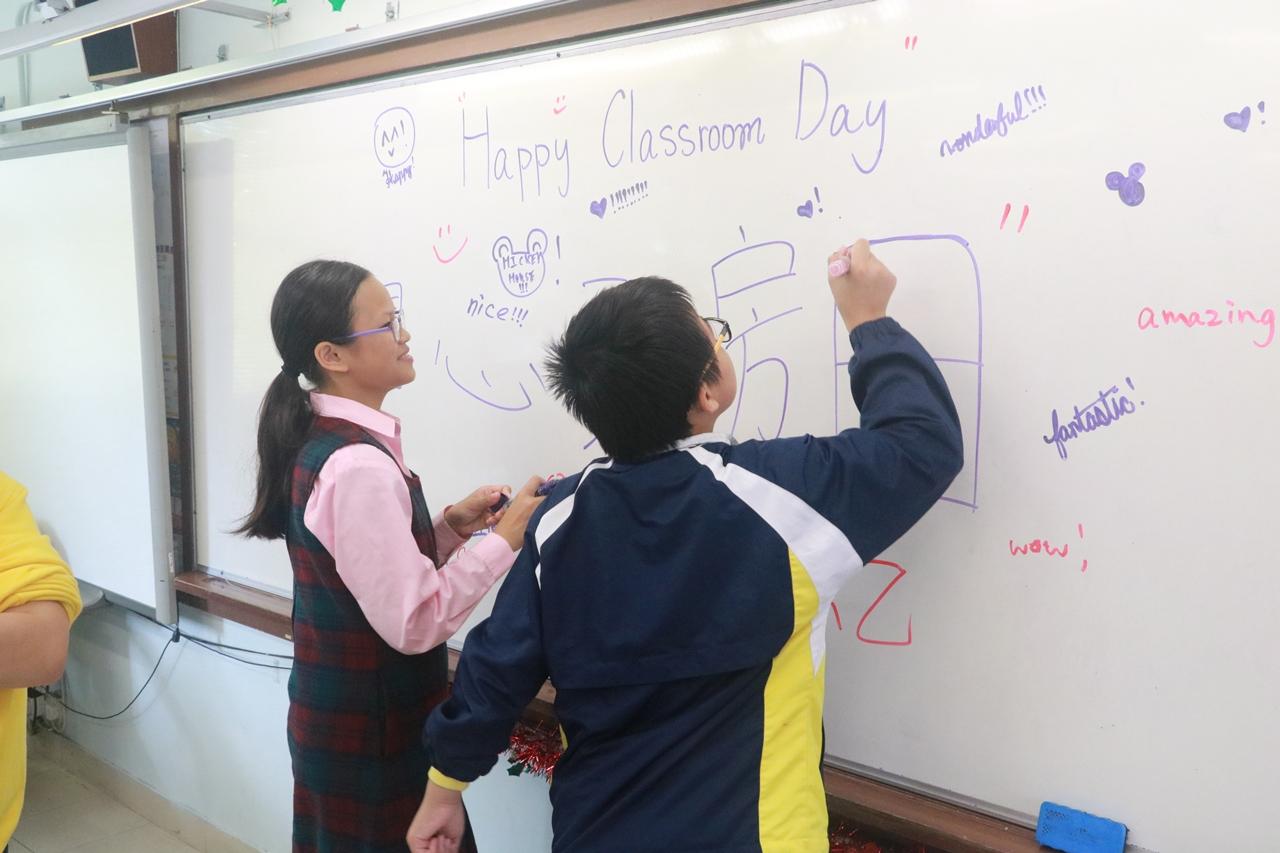 Happy Classroom Day
wonderful!!!
^^!
Happy!
!!!!!!!!!
!
!
MICKEY
MOUSE
!!!
!
nice!!!
amazing
fantastic!
wow!